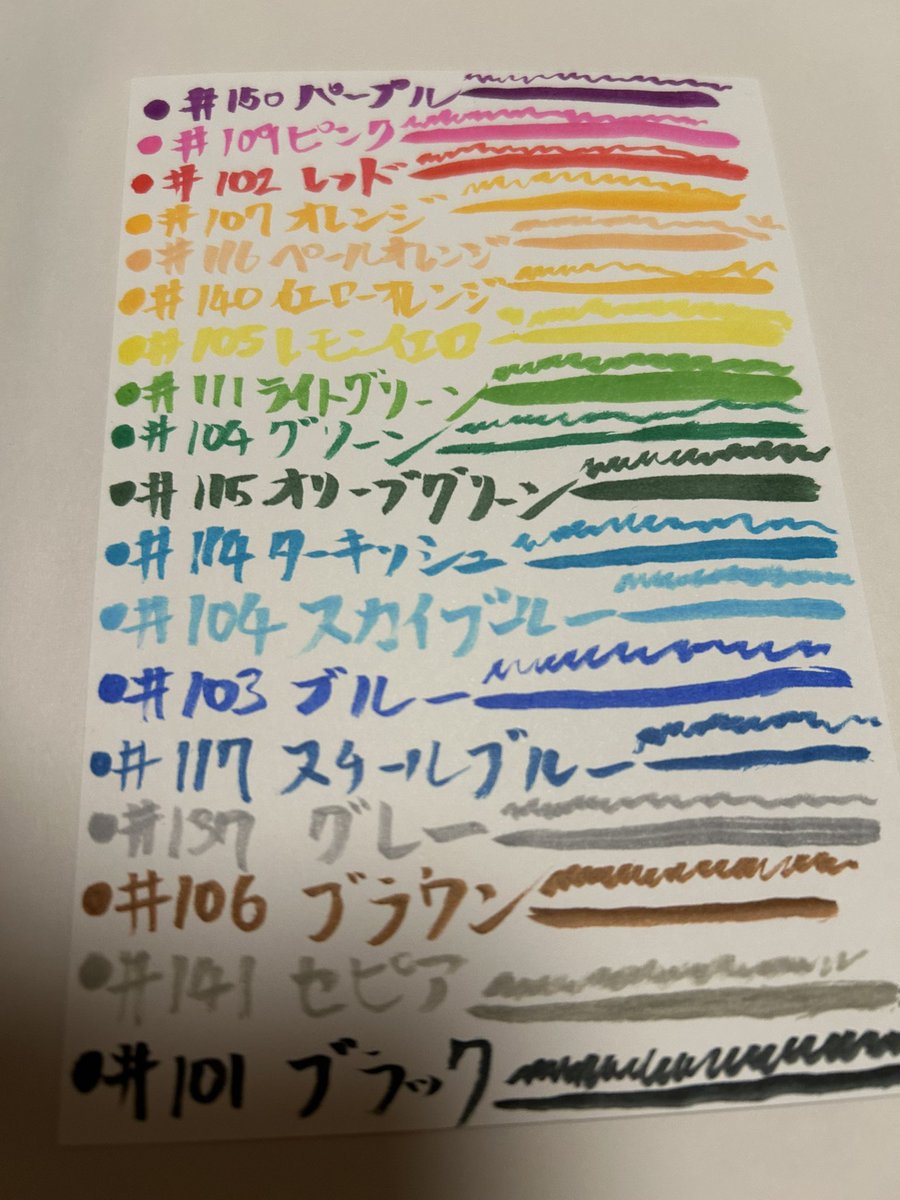 ●#150 パープル
●#109 ピンク
●#102 レッド
●#107 オレンジ
●#116 ペールオレンジ
●#140 イエローオレンジ
●#105 レモンイエロ
●#111 ライトグリーン
●#104 グリーン
●#115 オリーブグリーン
●#114 ターキッシュ
●#104 スカイブルー
●#103 ブルー
●#117 スチールブルー
●#137 グレー
●#106 ブラウン
●#141 セピア
●#101 ブラック